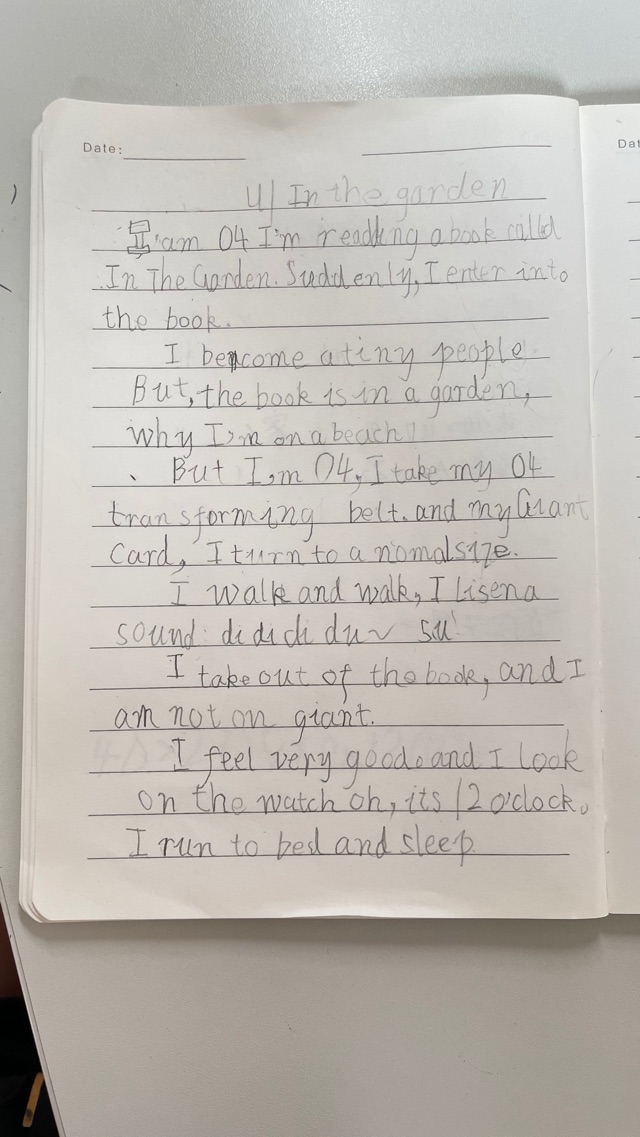 Date:
Dat
U1 In the garden
I am 04 I'm reading a book called
In The Garden. Suddenly, I enter into
the book.
I become a tiny people
But, the book is in a garden,
why I'm on a beach!
But I'm 04, I take my 04
transforming belt. and my Giant
Card, I turn to a nomal size.
I walk and walk, I lisen a
sound: di di di du~ su!
I take out of the book, and I
am not on giant.
I feel very good. and I look
on the watch oh, its 12 o'clock.
I run to bed and sleep